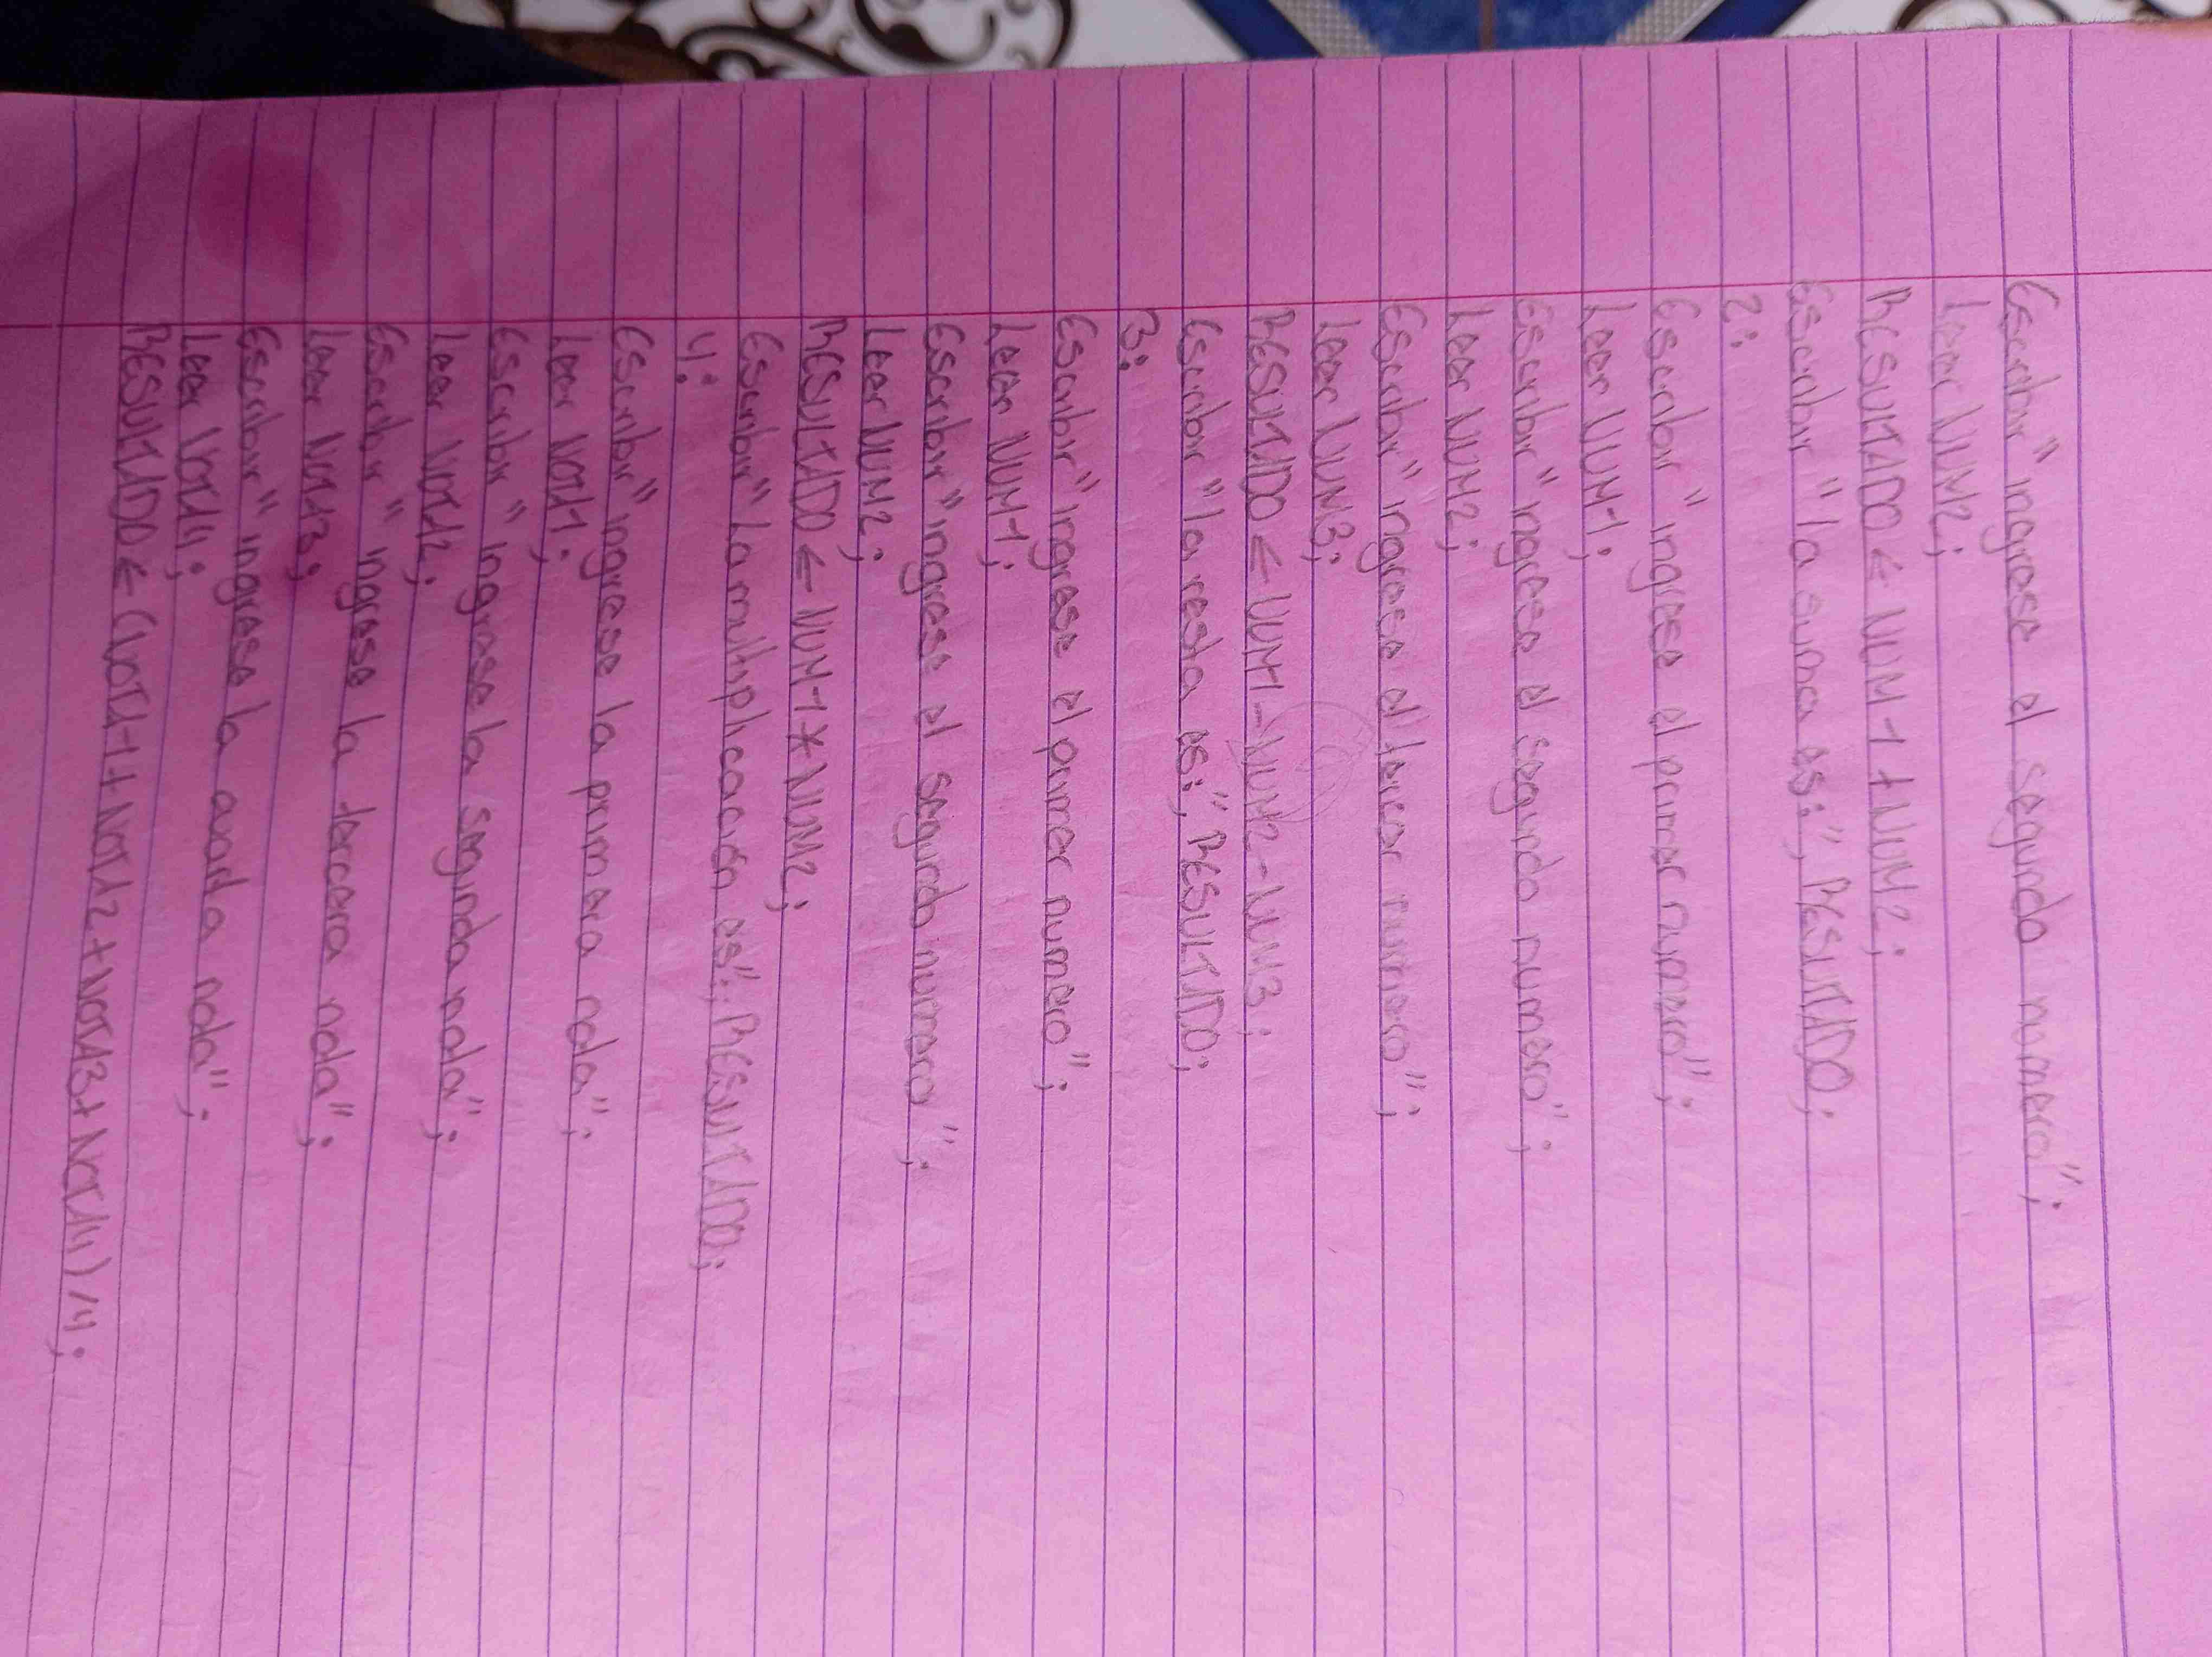 Escribir "ingrese el segundo numero";
Leer NUM2;
RESULTADO ← NUM1 + NUM2;
Escribir "la suma es:", RESULTADO;
2:
Escribir "ingrese el primer numero";
Leer NUM1;
Escribir "ingrese el segundo numero";
Leer NUM2;
Escribir "ingrese el tercer numero";
Leer NUM3;
RESULTADO ← NUM1 - NUM2 - NUM3;
Escribir "la resta es:", RESULTADO;
3:
Escribir "ingrese el primer numero";
Leer NUM1;
Escribir "ingrese el segundo numero";
Leer NUM2;
RESULTADO ← NUM1 * NUM2;
Escribir "La multiplicación es:", RESULTADO;
4:
Escribir "ingrese la primera nota";
Leer NOTA1;
Escribir "ingrese la segunda nota";
Leer NOTA2;
Escribir "ingrese la tercera nota";
Leer NOTA3;
Escribir "ingrese la cuarta nota";
Leer NOTA4;
RESULTADO ← (NOTA1 + NOTA2 + NOTA3 + NOTA4) / 4;